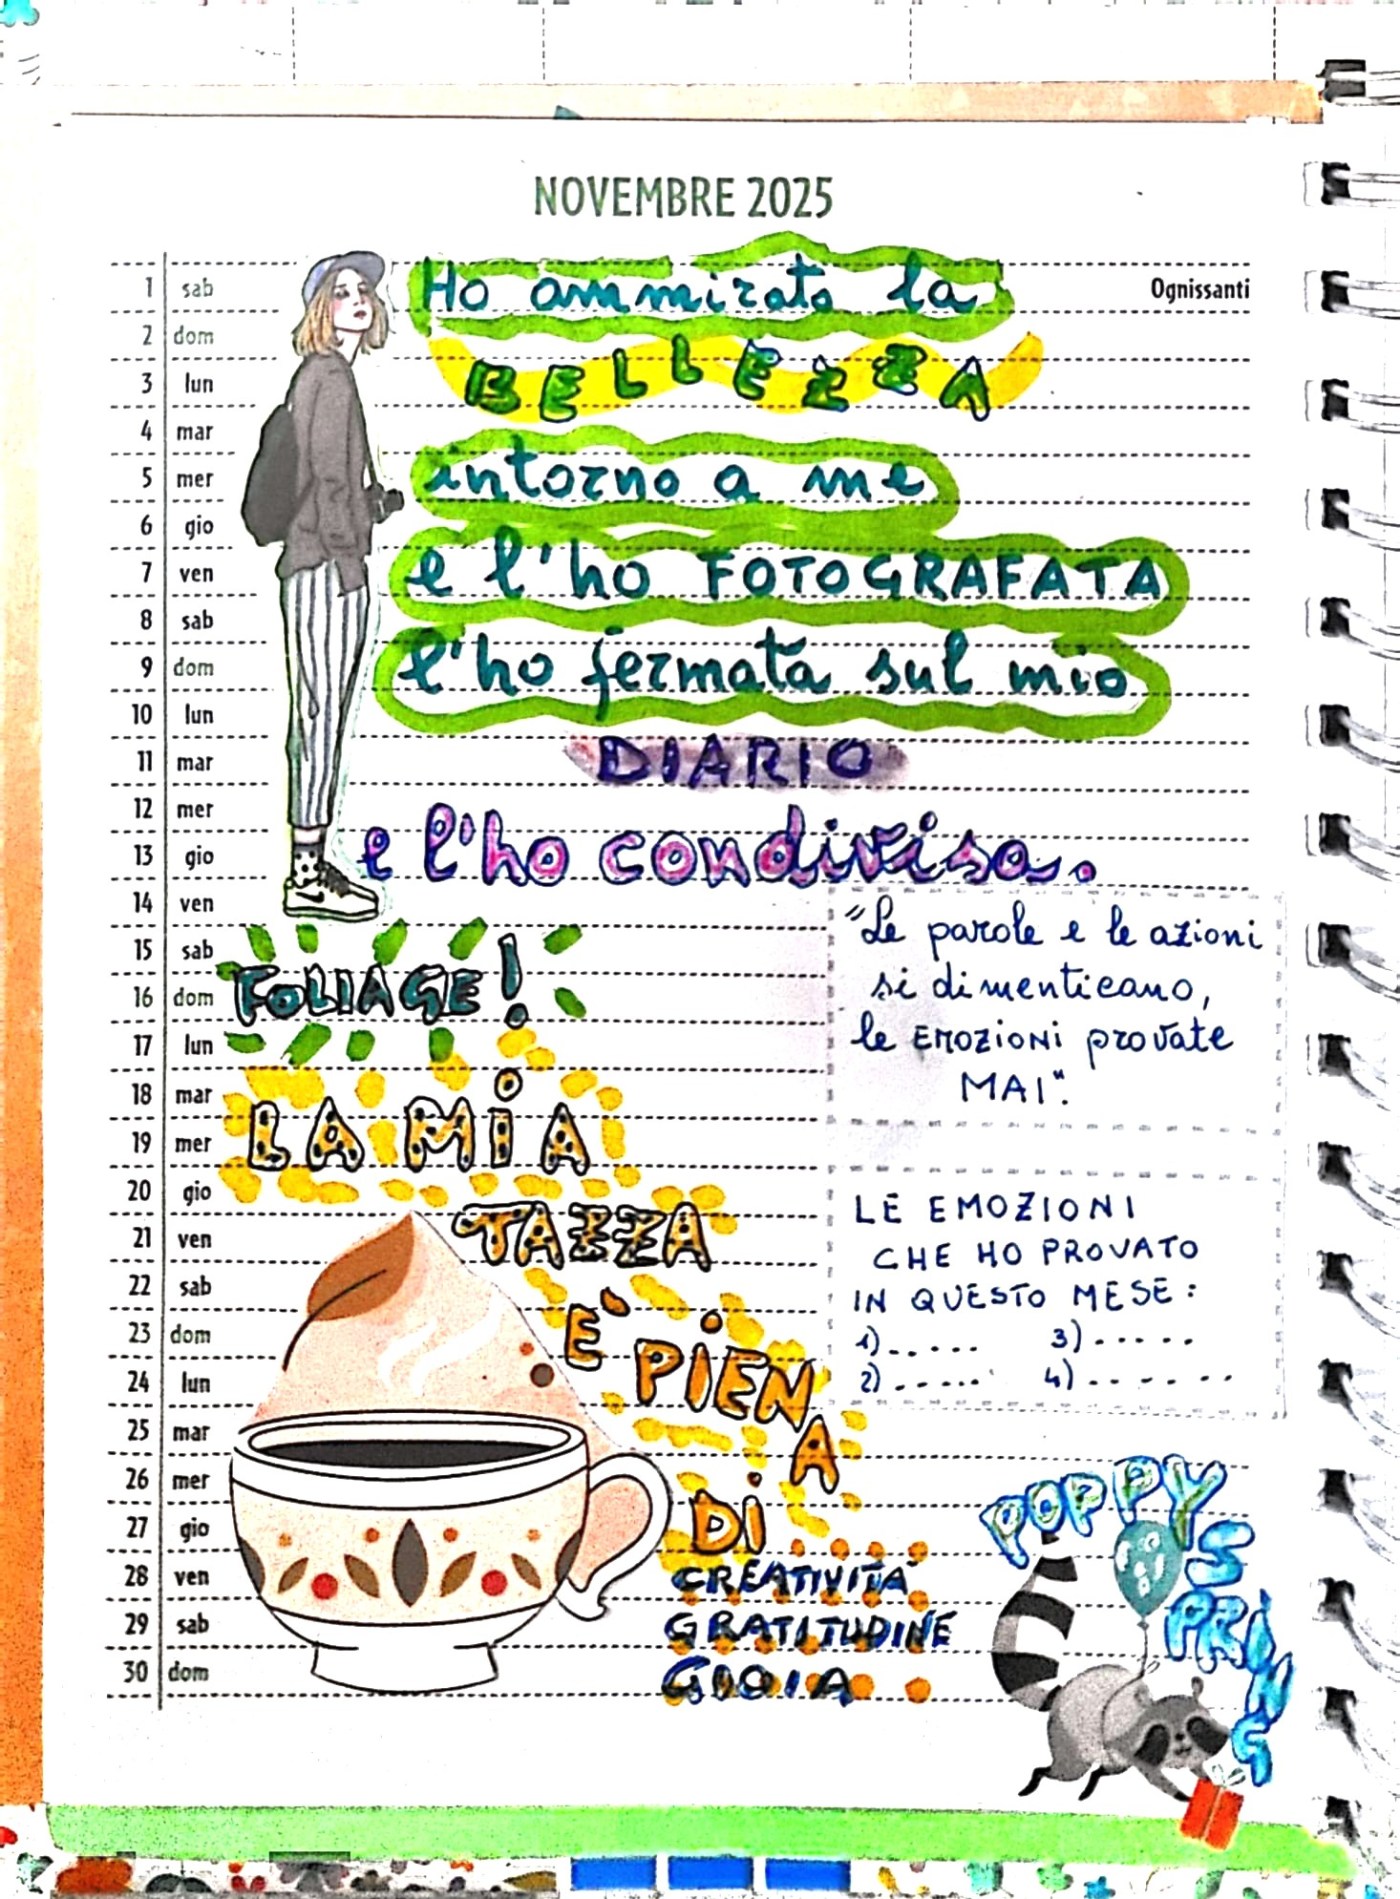 NOVEMBRE 2025
1 sab Ognissanti
2 dom
3 lun
4 mar
5 mer
6 gio
7 ven
8 sab
9 dom
10 lun
11 mar
12 mer
13 gio
14 ven
15 sab
16 dom
17 lun
18 mar
19 mer
20 gio
21 ven
22 sab
23 dom
24 lun
25 mar
26 mer
27 gio
28 ven
29 sab
30 dom
Ho ammirato la
BELLEZZA
intorno a me
e l'ho FOTOGRAFATA
l'ho fermata sul mio
DIARIO
e l'ho condivisa.
FOLIAGE!
LA MIA
TAZZA
E' PIENA
DI
CREATIVITÀ
GRATITUDINE
GIOIA
"Le parole e le azioni
si dimenticano,
le EMOZIONI provate
MAI".
LE EMOZIONI
CHE HO PROVATO
IN QUESTO MESE:
1)..... 3).....
2)..... 4)......
POPPY
SPRING